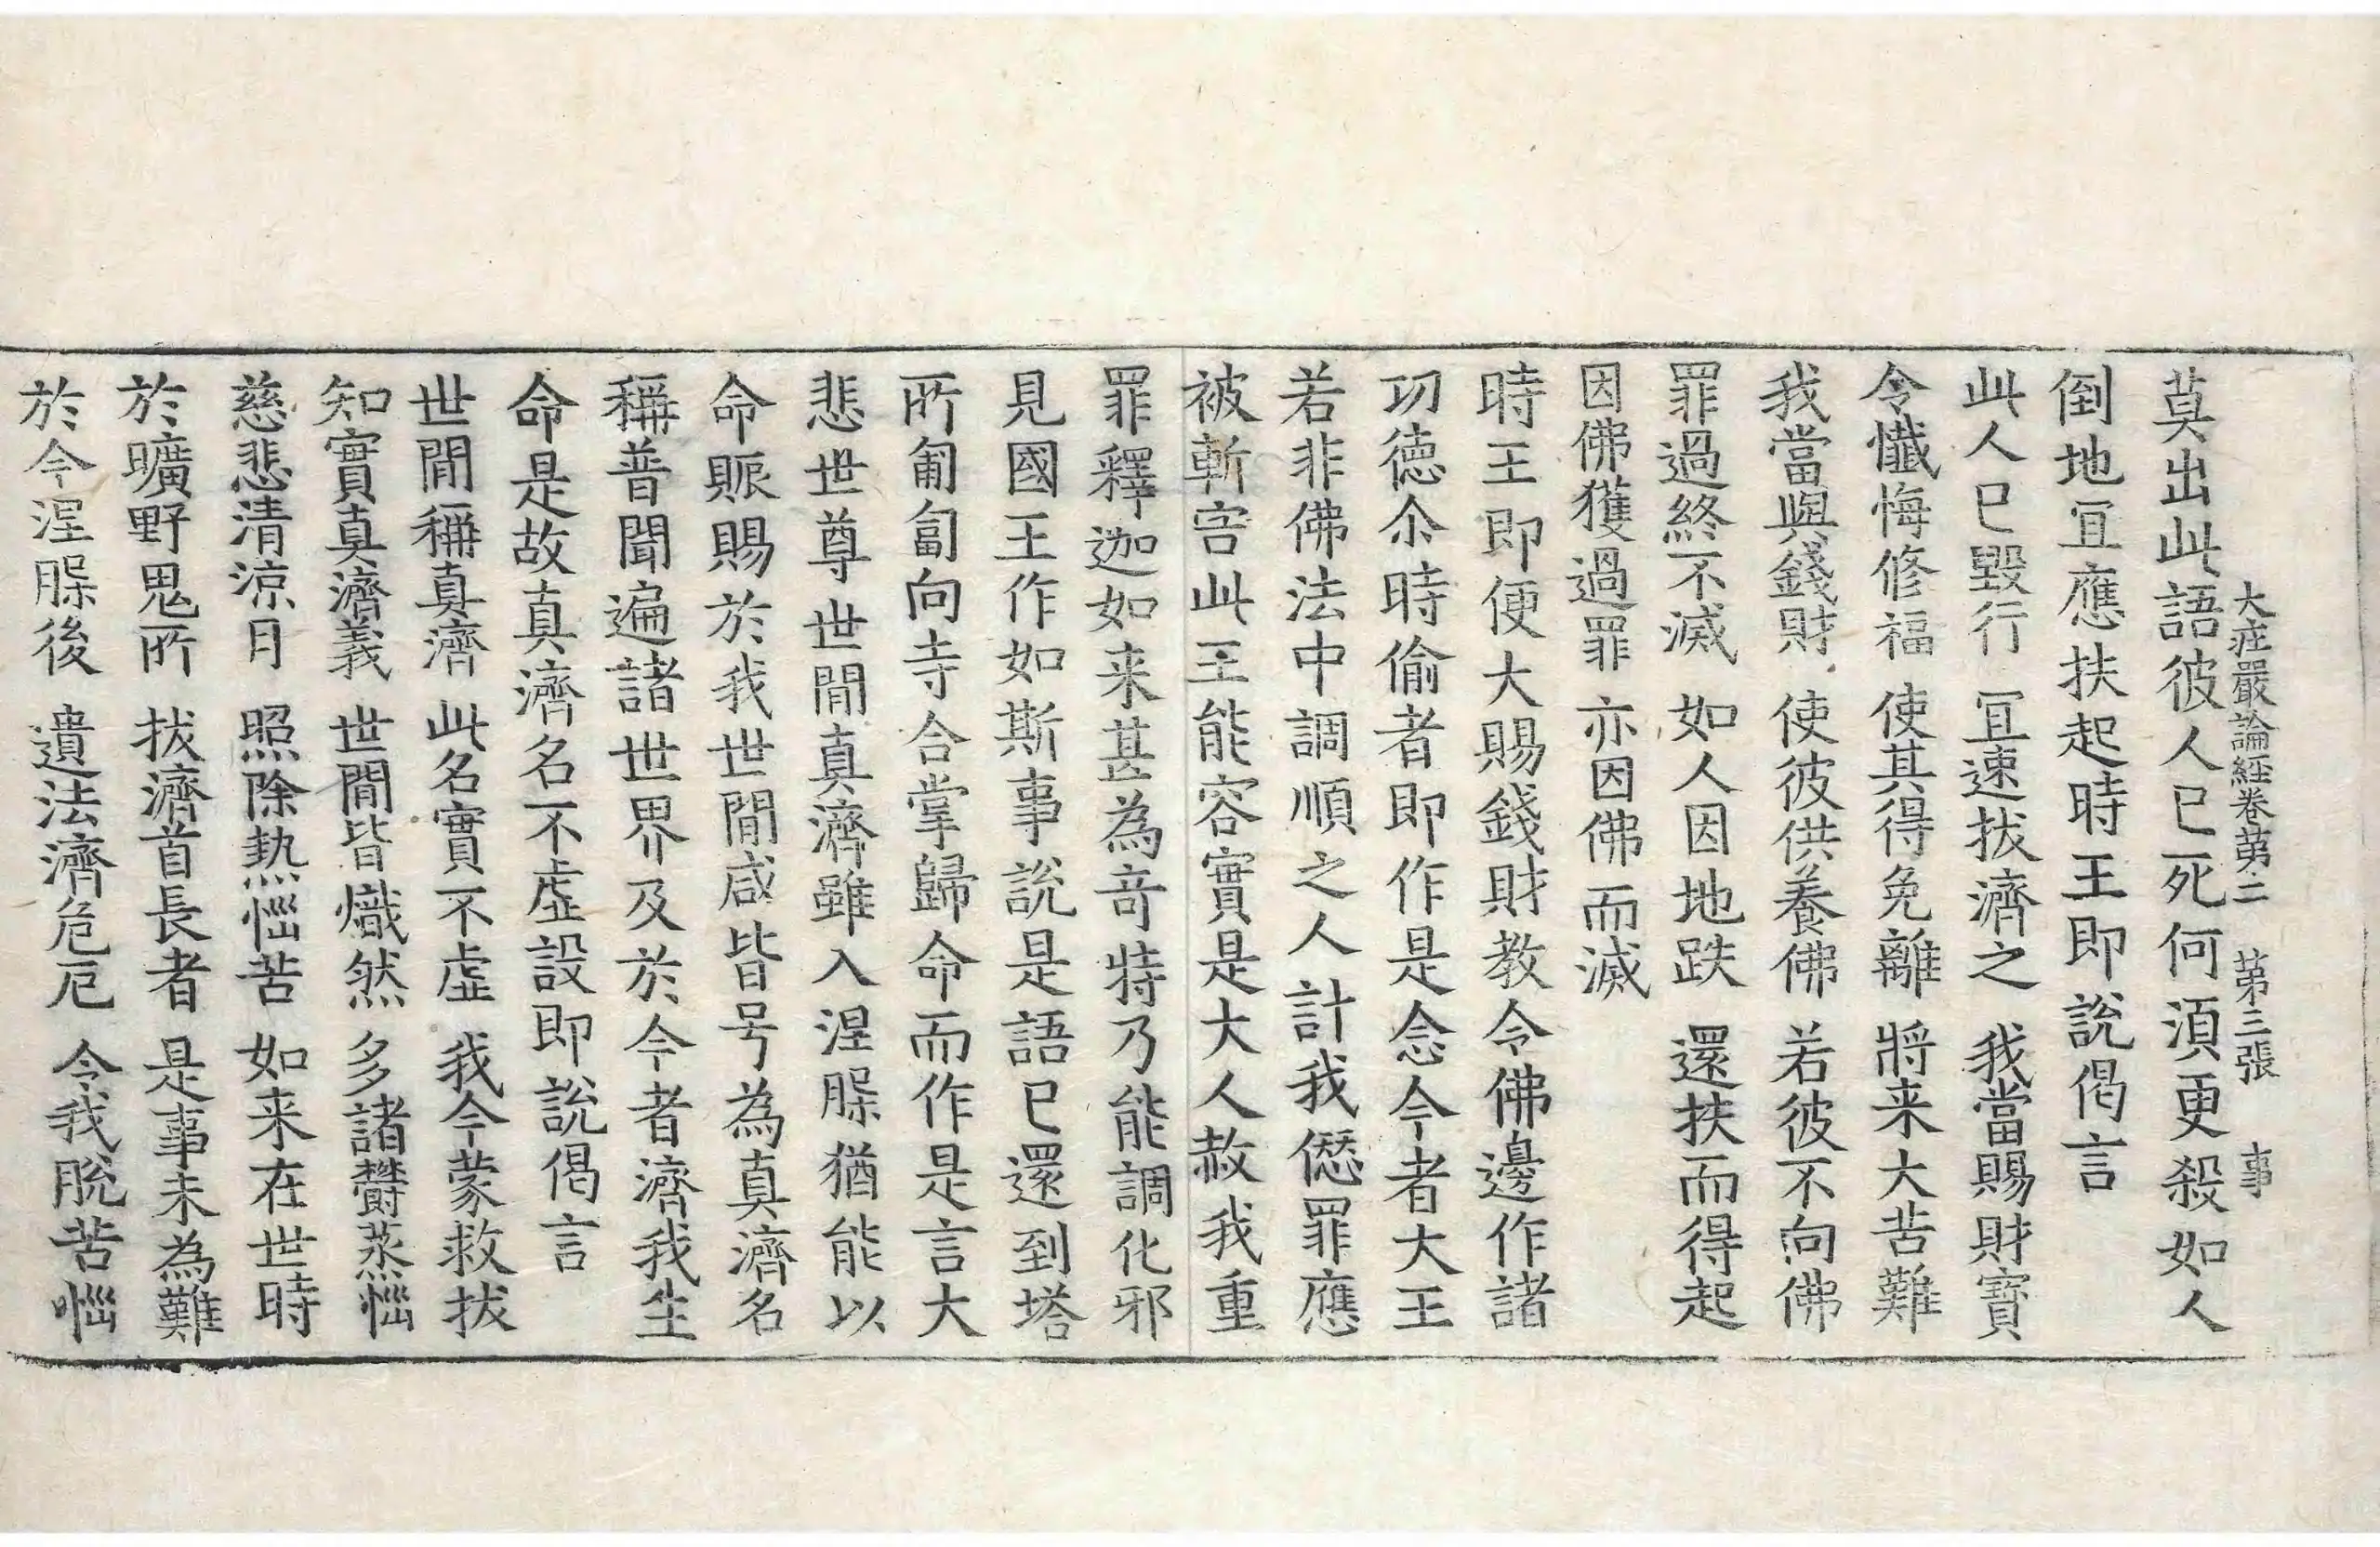 大莊嚴論經卷第二　第三張　事
莫出此語彼人已死何須更殺如人
倒地冝應扶起時王即說偈言
此人已毀行　冝速拔濟之　我當賜財寶
令懺悔修福　使其得免離　將来大苦難
我當與錢財　使彼供養佛　若彼不向佛
罪過終不滅　如人因地跌　還扶而得起
因佛獲過罪　亦因佛而滅
時王即便大賜錢財教令佛邊作諸
功德尒時偷者即作是念今者大王
若非佛法中調順之人計我愆罪應
被斬害此王能容實是大人赦我重
罪釋迦如来甚為竒特乃能調化邪
見國王作如斯事說是語已還到塔
所匍匐向寺合掌歸命而作是言大
悲世尊世間真濟雖入涅槃猶能以
命賑賜於我世間咸皆号為真濟名
稱普聞遍諸世界及於今者濟我生
命是故真濟名不虛設即說偈言
世間稱真濟　此名實不虛　我今蒙救拔
知實真濟義　世間皆熾然　多諸欝蒸惱
慈悲清涼月　照除熱惱苦　如来在世時
於曠野鬼所　拔濟首長者　是事未為難
於今涅槃後　遺法濟危厄　令我脫苦惱